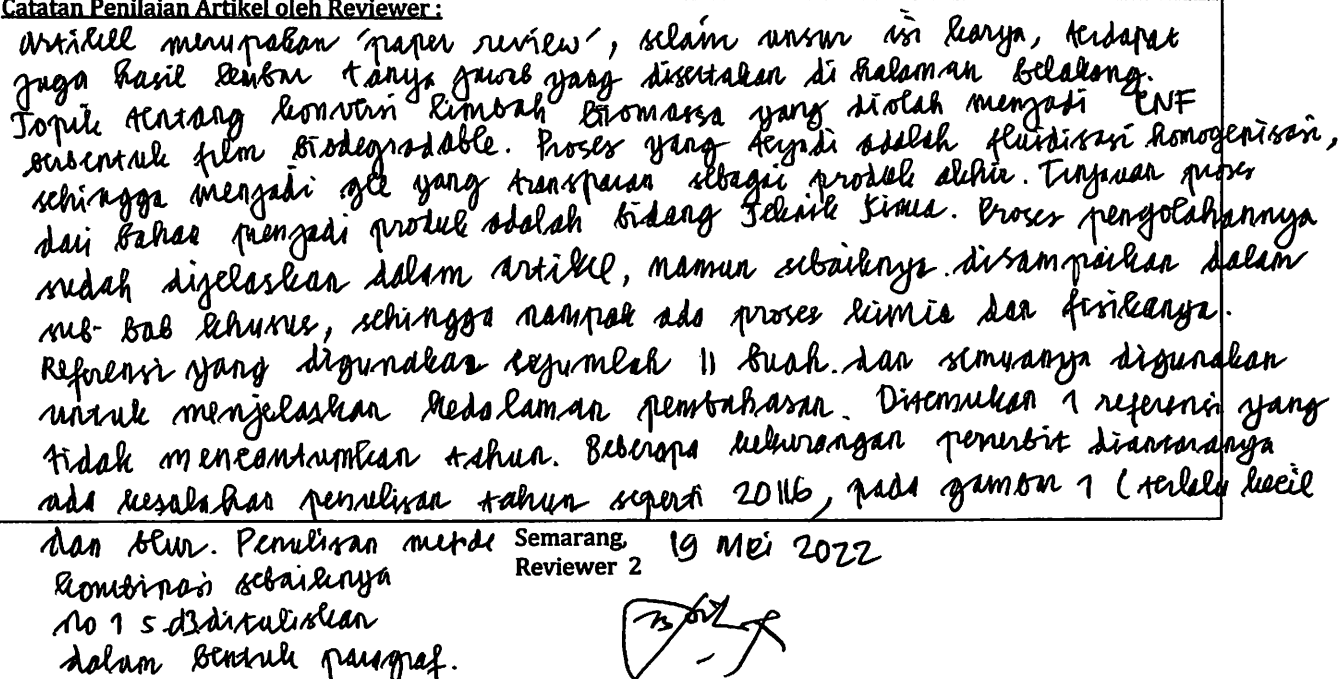 Catatan Penilaian Artikel oleh Reviewer :
Artikel merupakan 'paper review', selain unsur isi karya, terdapat
juga hasil lembar tanya jawab yang disertakan di halaman belakang.
Topik tentang konversi limbah biomassa yang diolah menjadi CNF
berbentuk film biodegradable. Proses yang terjadi adalah fluidisasi homogenisasi,
sehingga menjadi gel yang transparan sebagai produk akhir. Tinjauan proses
dari bahan menjadi produk adalah bidang Teknik Kimia. Proses pengolahannya
sudah dijelaskan dalam artikel, namun sebaiknya disampaikan dalam
sub-bab khusus, sehingga nampak ada proses kimia dan fisikanya.
Referensi yang digunakan sejumlah 11 buah. dan semuanya digunakan
untuk menjelaskan kedalaman pembahasan. Ditemukan 1 referensi yang
tidak mencantumkan tahun. Beberapa kekurangan penerbit diantaranya
ada kesalahan penulisan tahun seperti 20116, pada gambar 1 (terlalu kecil
dan blur. Penulisan metode
kombinasi sebaiknya
no 1 s.d3 dituliskan
dalam bentuk paragraf.
Semarang, 19 Mei 2022
Reviewer 2